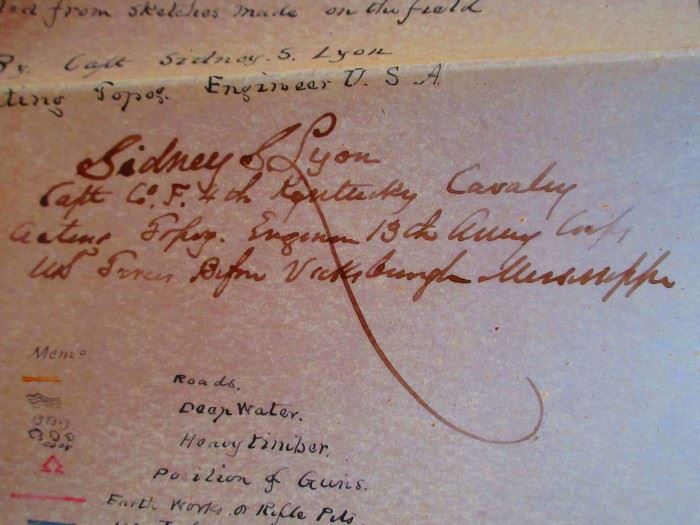 ted from sketches made on the field
By. Capt Sidney. S. Lyon
ting Topog. Engineer U. S. A.
Sidney S Lyon
Capt Co. F. 4th Kentucky Cavalry
Acting Topog. Engineer 13th Army Corps
US Forces Before Vicksburgh Mississippi
Memo
Roads.
Deep Water.
Heavy timber.
Position of Guns.
Earth Works or Rifle Pits